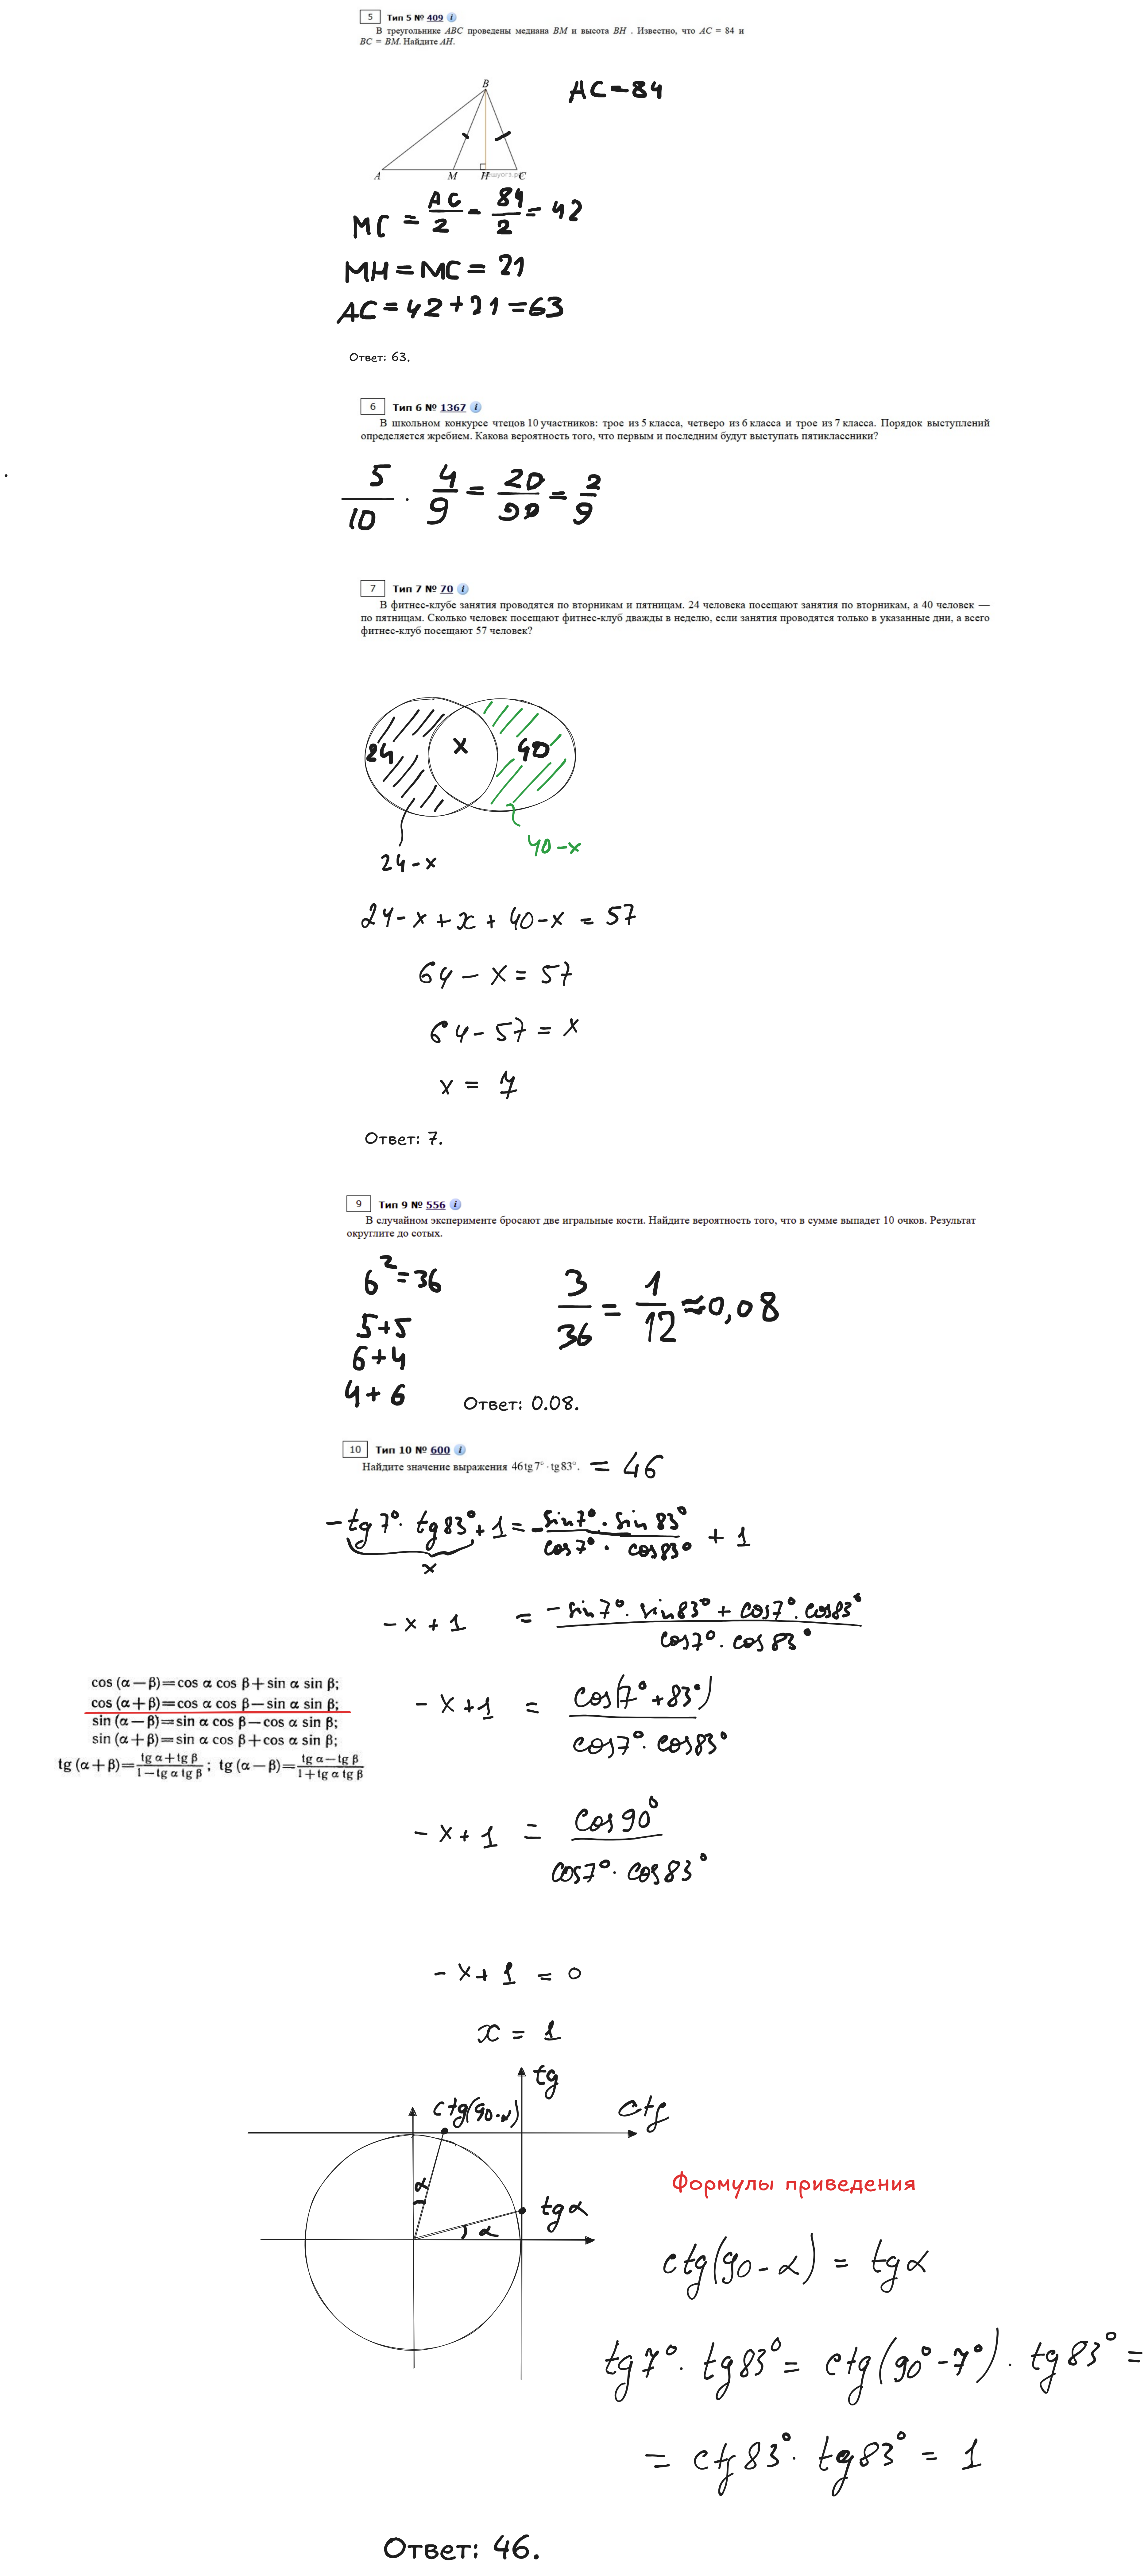 5 Тип 5 № 409 i
В треугольнике ABC проведены медиана BM и высота BH . Известно, что AC = 84 и
BC = BM. Найдите AH.
AC = 84
B
A M H C
MC = AC/2 = 84/2 = 42
MH = MC = 21
AC = 42 + 21 = 63
Ответ: 63.
6 Тип 6 № 1367 i
В школьном конкурсе чтецов 10 участников: трое из 5 класса, четверо из 6 класса и трое из 7 класса. Порядок выступлений
определяется жребием. Какова вероятность того, что первым и последним будут выступать пятиклассники?
5/10 · 4/9 = 20/90 = 2/9
7 Тип 7 № 70 i
В фитнес-клубе занятия проводятся по вторникам и пятницам. 24 человека посещают занятия по вторникам, а 40 человек —
по пятницам. Сколько человек посещают фитнес-клуб дважды в неделю, если занятия проводятся только в указанные дни, а всего
фитнес-клуб посещают 57 человек?
24 x 40
40 - x
24 - x
24 - x + x + 40 - x = 57
64 - x = 57
64 - 57 = x
x = 7
Ответ: 7.
9 Тип 9 № 556 i
В случайном эксперименте бросают две игральные кости. Найдите вероятность того, что в сумме выпадет 10 очков. Результат
округлите до сотых.
6² = 36
3/36 = 1/12 ≈ 0,08
5+5
6+4
4+6
Ответ: 0.08.
10 Тип 10 № 600 i
Найдите значение выражения 46 tg 7° · tg 83°. = 46
- tg 7° · tg 83° + 1 = - sin 7° · sin 83° / cos 7° · cos 83° + 1
x
- x + 1 = - sin 7° · sin 83° + cos 7° · cos 83° / cos 7° · cos 83°
cos (α − β) = cos α cos β + sin α sin β;
cos (α + β) = cos α cos β − sin α sin β;
sin (α − β) = sin α cos β − cos α sin β;
sin (α + β) = sin α cos β + cos α sin β;
tg (α + β) = tg α + tg β / 1 − tg α tg β ; tg (α − β) = tg α − tg β / 1 + tg α tg β
- x + 1 = cos(7° + 83°) / cos 7° · cos 83°
- x + 1 = cos 90° / cos 7° · cos 83°
- x + 1 = 0
x = 1
tg
ctg(90-α)
ctg
α
tg α
α
Формулы приведения
ctg(90 - α) = tg α
tg 7° · tg 83° = ctg(90° - 7°) · tg 83° =
= ctg 83° · tg 83° = 1
Ответ: 46.